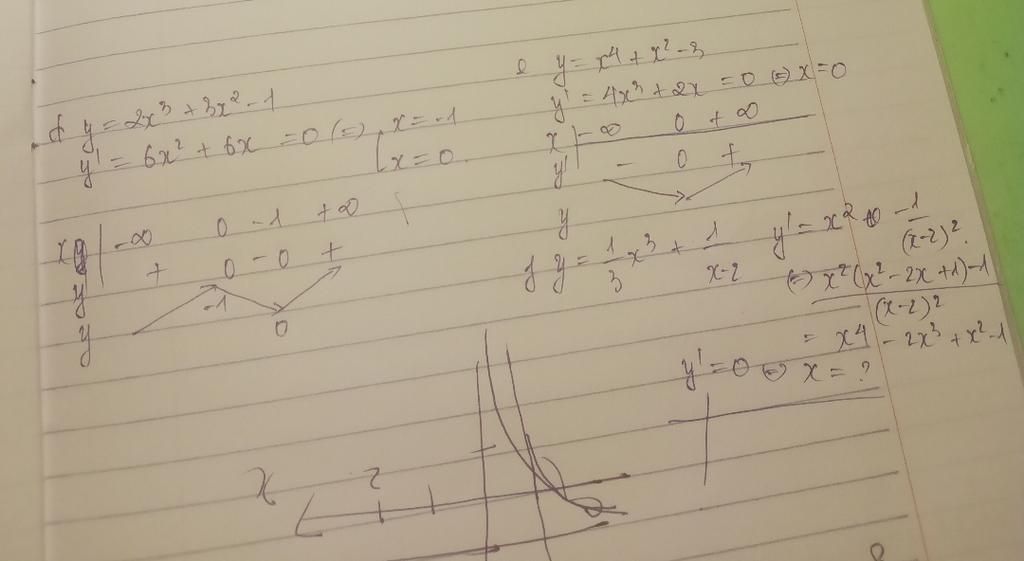 d. y = 2x³ + 3x² - 1
y' = 6x² + 6x = 0 (=) [ x = -1
x = 0
x | -∞ 0 -1 +∞
y' + 0 - 0 +
y -1 0
e y = x⁴ + x² - 3
y' = 4x³ + 2x = 0 (=) x = 0
x | -∞ 0 +∞
y' | - 0 +
y
f y = 1/3 x³ + 1/(x-2) y' = x² -1/(x-2)².
(=) (x²(x² - 2x + 1) - 1)/(x-2)²
= x⁴ - 2x³ + x² - 1
y' = 0 (=) x = ?
x 2